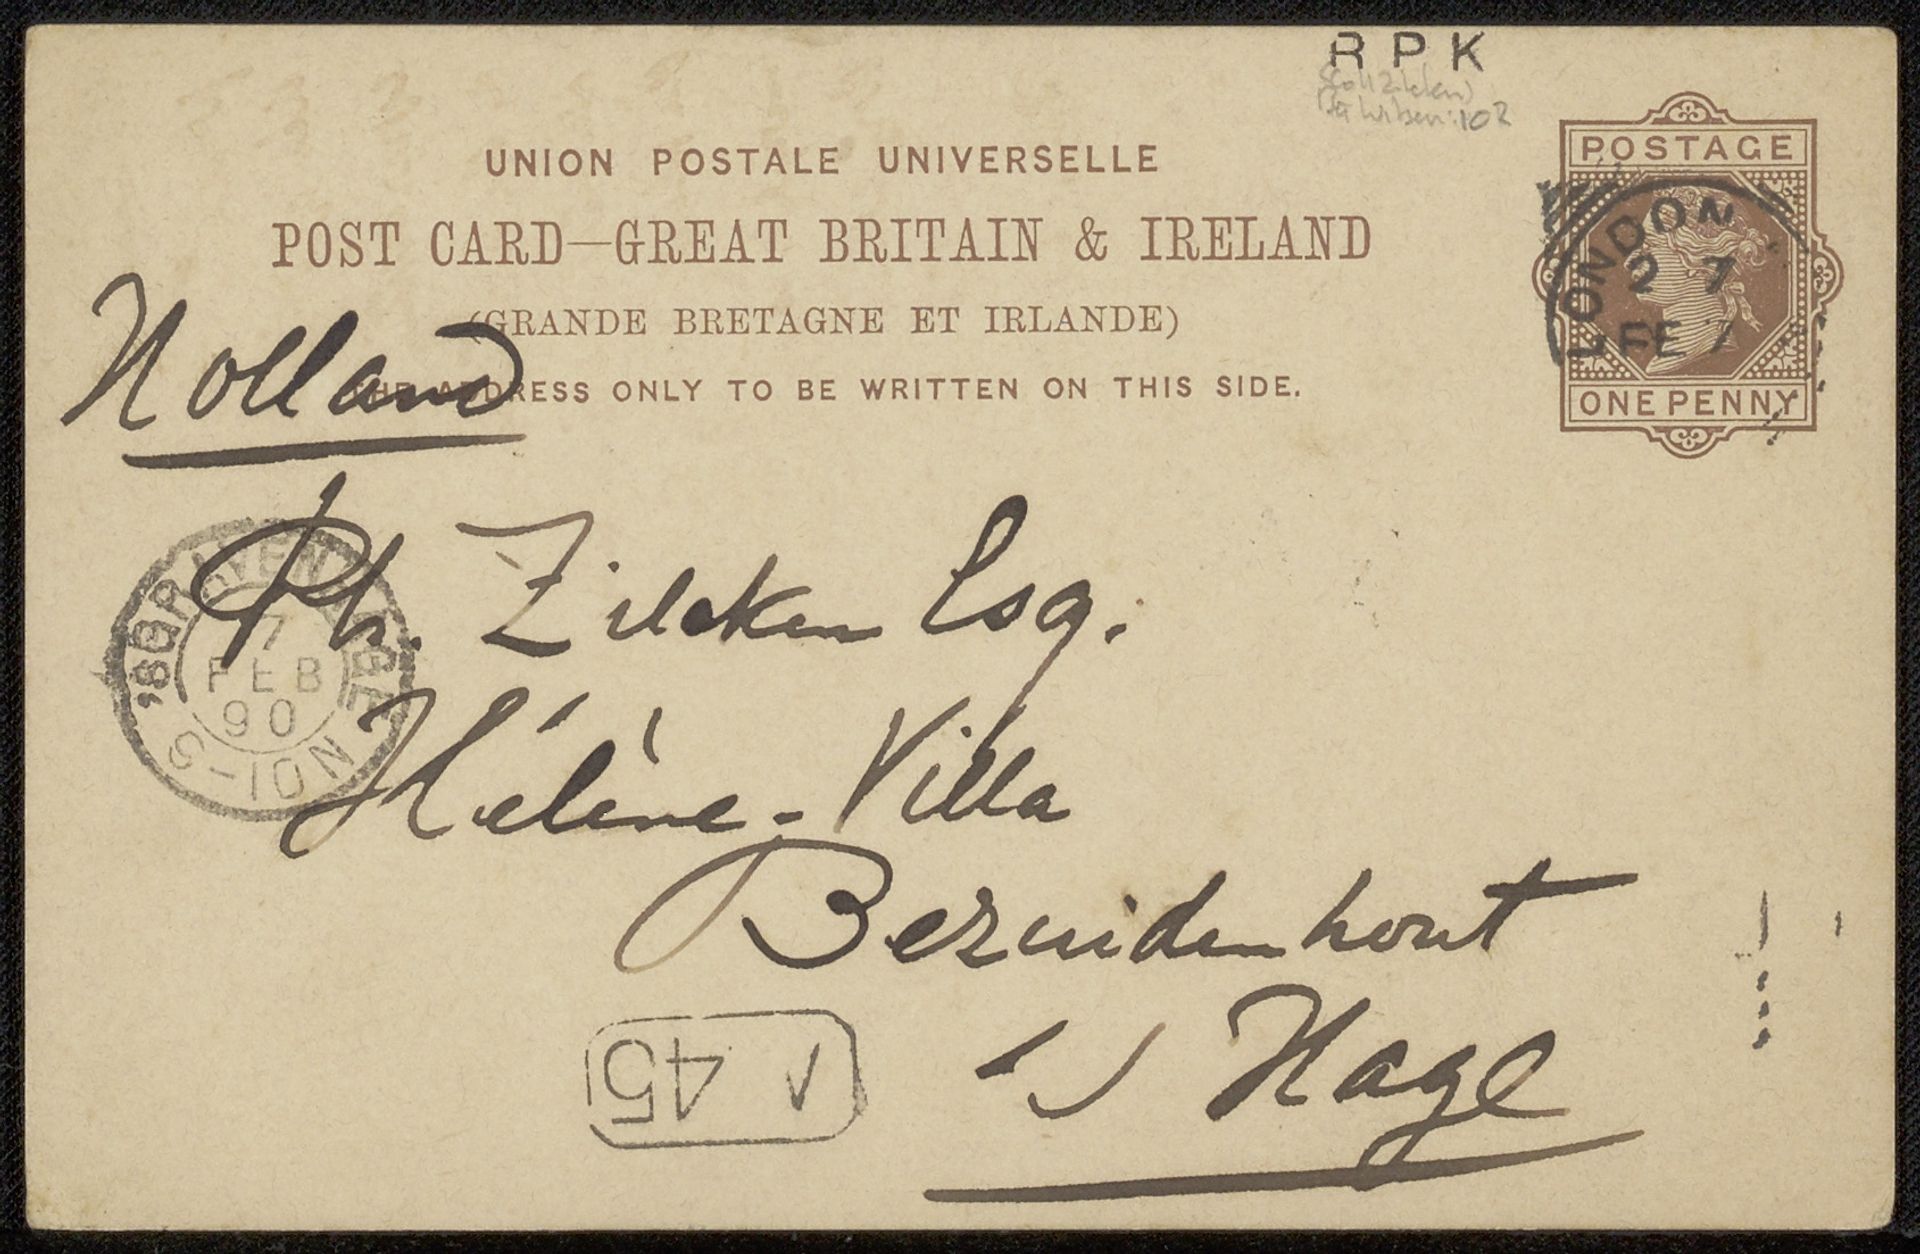 R P K
102
UNION POSTALE UNIVERSELLE
POST CARD—GREAT BRITAIN & IRELAND
(GRANDE BRETAGNE ET IRLANDE)
THE ADDRESS ONLY TO BE WRITTEN ON THIS SIDE.
POSTAGE
ONE PENNY
LONDON
2 7
FE 7
Holland
Ph. Zilcken Esq.
Hélène-Villa
Bezuidenhout
's Hage
'SGRAVENHAGE
7
FEB
90
9-10N
45